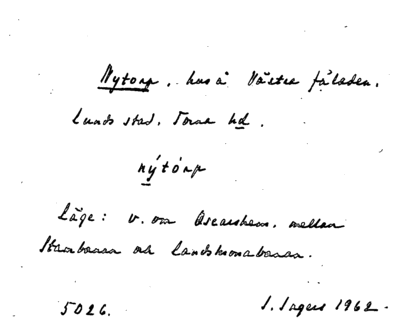 Nytorp, hus å Västra fäladen,
Lunds stad, Torna hd.
nýtórp
Läge: v. om Oscarshem, mellan
Stambanan och Landskronabanan.
5026. I. Ingers 1962.